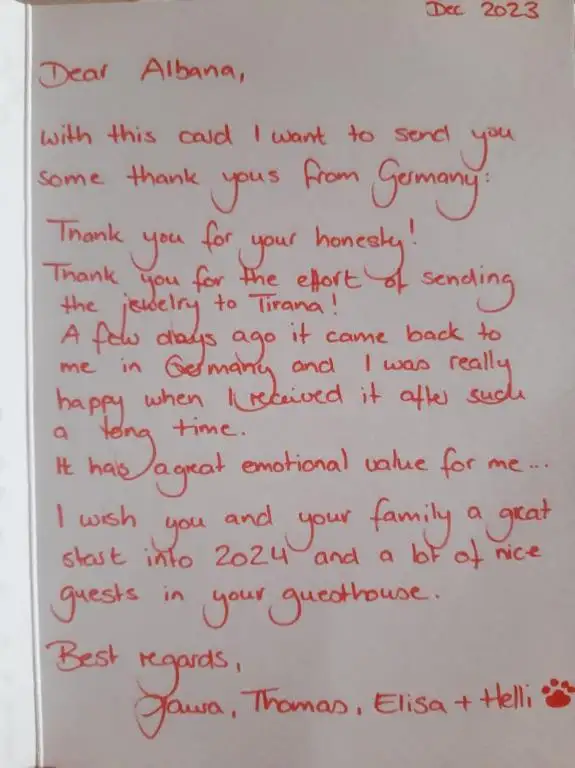 Dec 2023
Dear Albana,
with this card I want to send you
some thank yous from Germany:
Thank you for your honesty!
Thank you for the effort of sending
the jewelry to Tirana!
A few days ago it came back to
me in Germany and I was really
happy when I received it after such
a long time.
It has a great emotional value for me...
I wish you and your family a great
start into 2024 and a lot of nice
guests in your guesthouse.
Best regards,
Thomas, Elisa + Helli